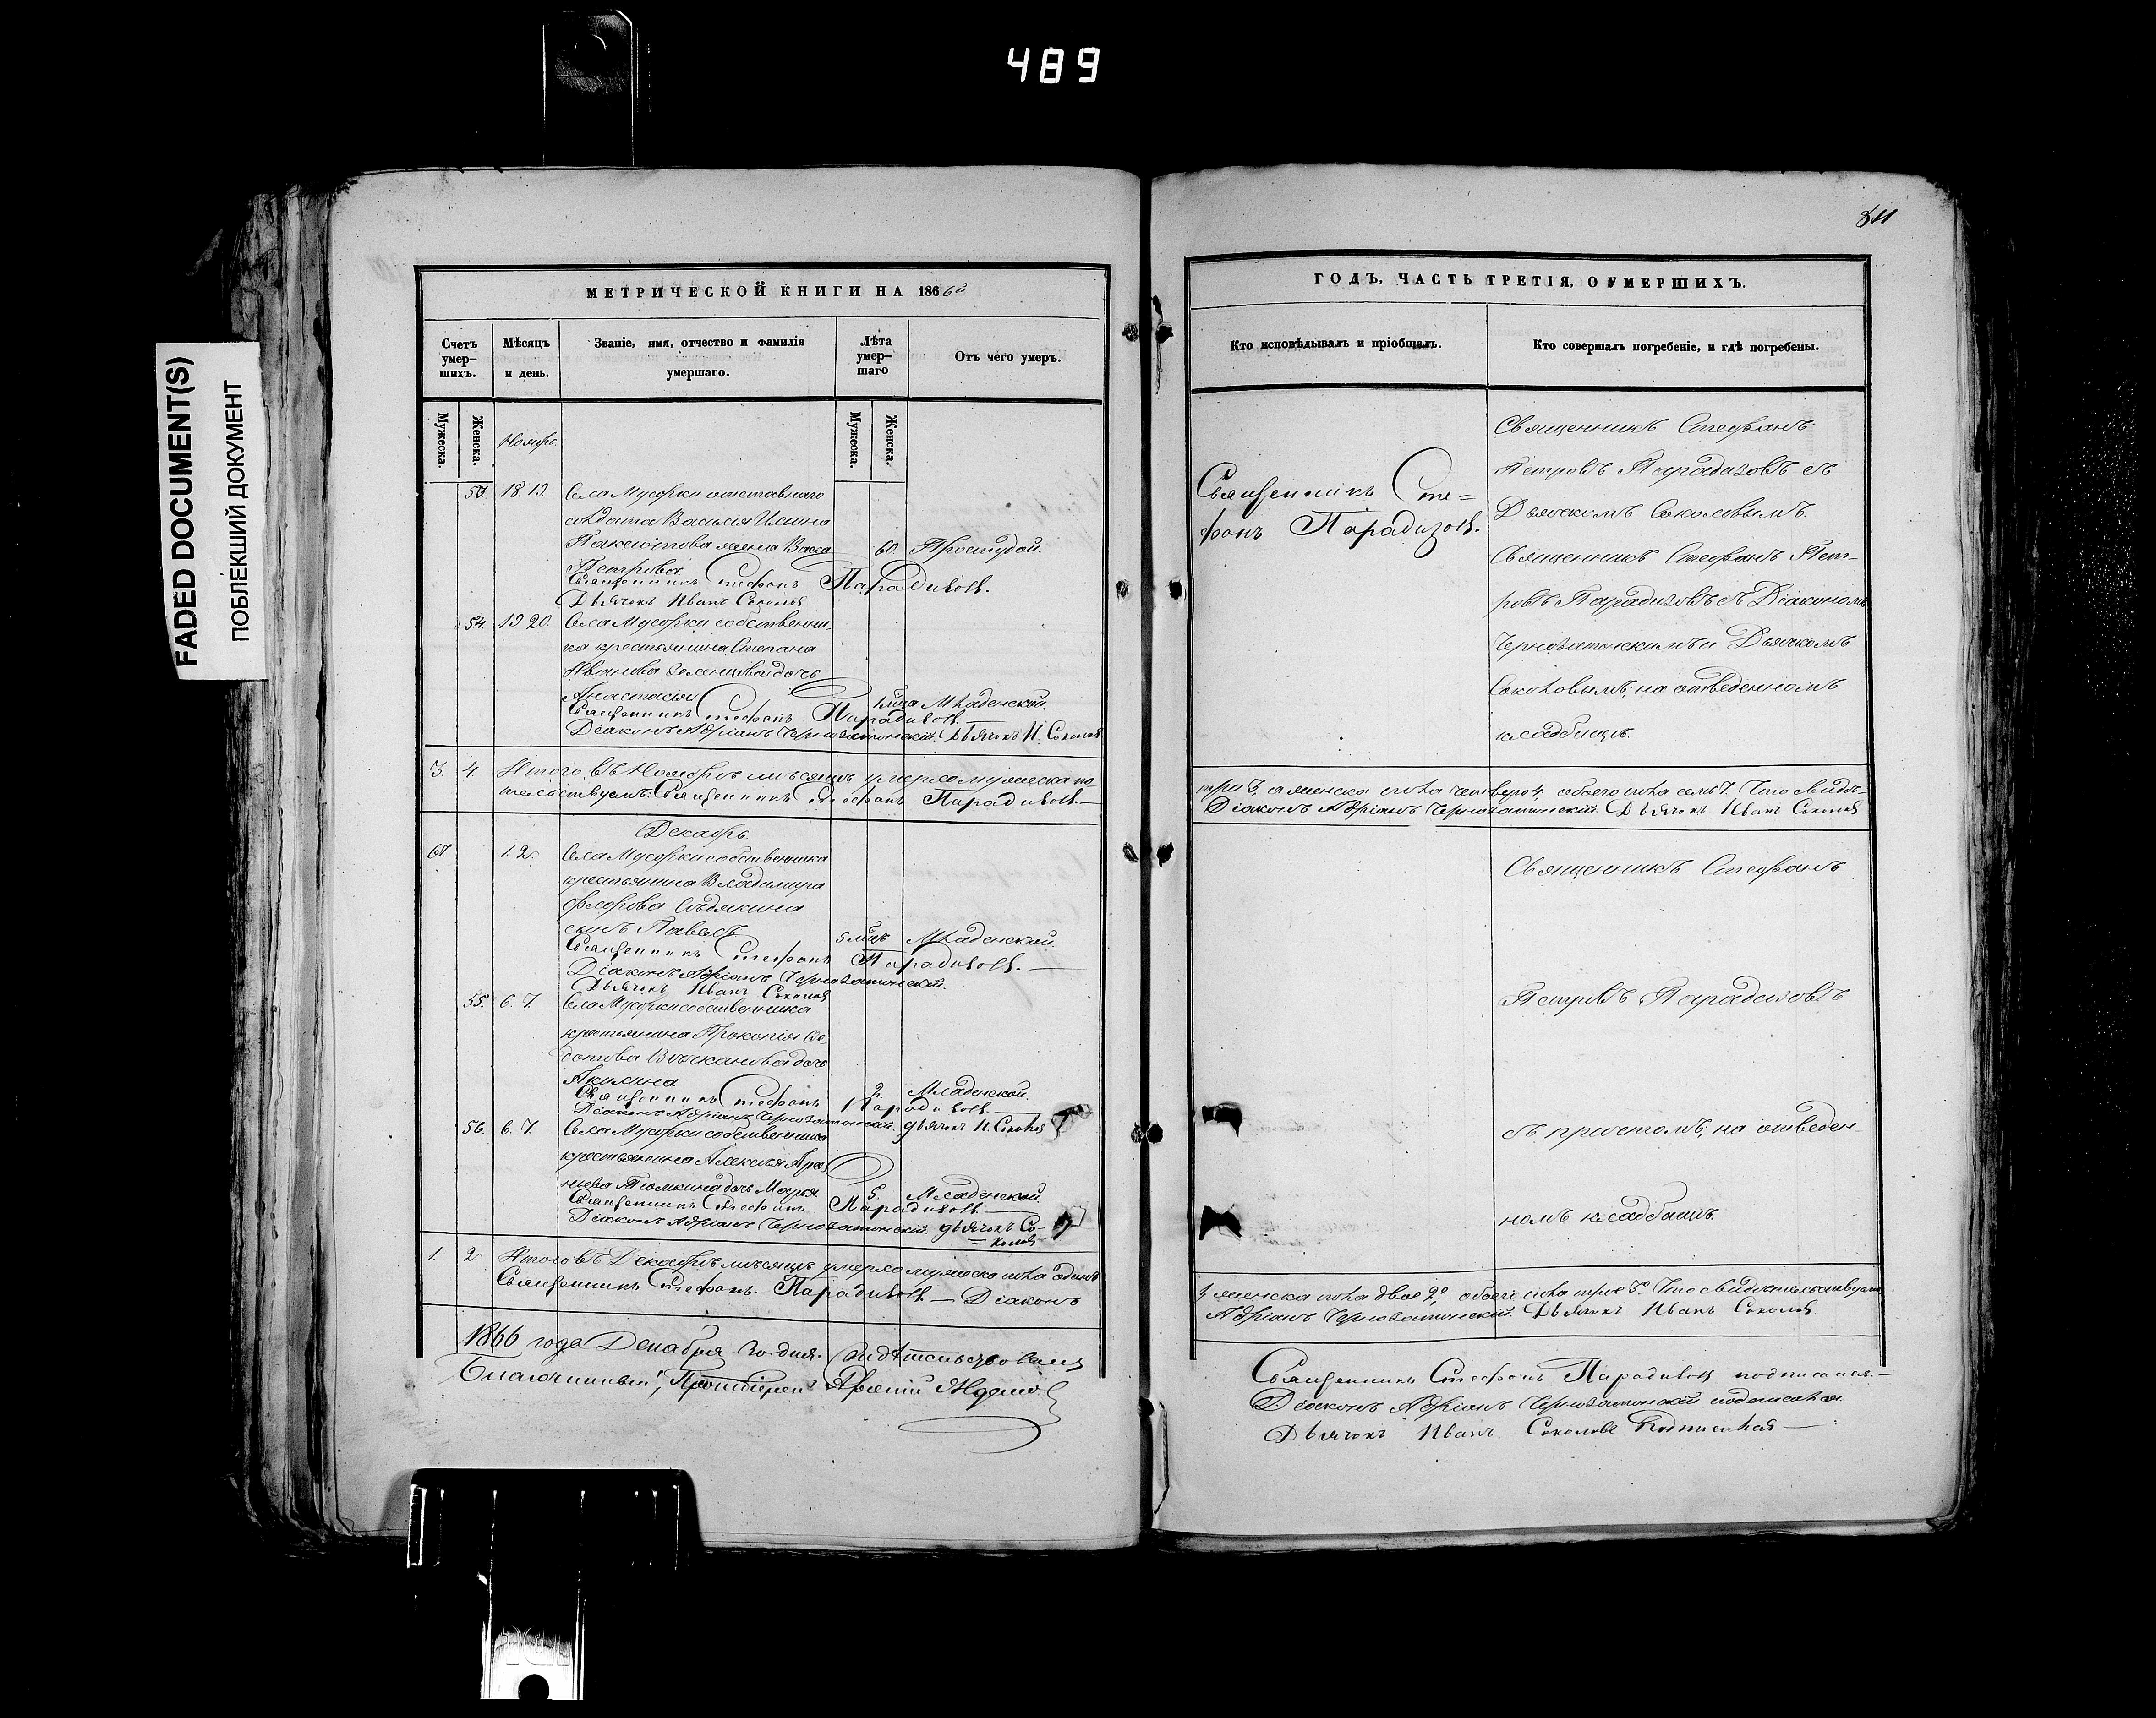 489
FADED DOCUMENT(S)
ПОБЛЕКШИЙ ДОКУМЕНТ
МЕТРИЧЕСКОЙ КНИГИ НА 1866й
Счетъ умер-шихъ.
Мѣсяцъ и день.
Званіе, имя, отчество и фамилія умершаго.
Лѣта умер-шаго
Отъ чего умеръ.
Мужеска.
Женска.
Мужеска.
Женска.
Ноябрь.
18. 19. Села Мусорки отставнаго
солдата Василія Ильина
жена Васса 60. Простудой.
Петрова
Священникъ Стефанъ Парадизовъ.
Дьячокъ Иванъ Соколов
54. 19 20. Села Мусорки собственни-
ка крестьянина Степана
Иванова дочь
Анастасья Младенской.
Священникъ Стефанъ Парадизовъ.
Діаконъ Адріанъ Черноватонскій. Дьячокъ И. Соколов
3. 4. Итого въ Ноябрѣ мѣсяцѣ умерло мужеска по-
тельствуемъ: Священникъ Стефанъ Парадизовъ.
Декабрь.
67. 1. 2. Села Мусорки собственника
крестьянина Владимира
Федорова
сынъ Павелъ 5 мцъ Младенской.
Священникъ Стефанъ Парадизовъ.
Діаконъ Адріанъ Черноватонскій.
Дьячокъ Иванъ Соколов
55. 6. 7. Села Мусорки собственника
крестьянина Прокопія Фе-
дотова дочь
Акилина 2. Младенской.
Священникъ Стефанъ Парадизовъ.
Діаконъ Адріанъ Черноватонскій. Дьячокъ И. Соколов
56. 6. 7. Села Мусорки собственника
крестьянина Алексѣя
дочь Марья 5. Младенской.
Священникъ Стефанъ Парадизовъ.
Діаконъ Адріанъ Черноватонскій. Дьячокъ Со-
=колов
1. 2. Итого въ Декабрѣ мѣсяцѣ умерло мужеска пола одинъ
Священникъ Стефанъ Парадизовъ. — Діаконъ
1866 года Декабря дня. Свидѣтельствовалъ
Благочинный, Протоіерей Арсеній
811
ГОДЪ, ЧАСТЬ ТРЕТІЯ, О УМЕРШИХЪ.
Кто исповѣдывалъ и пріобщалъ.
Кто совершалъ погребеніе, и гдѣ погребены.
Священникъ Сте=
фанъ Парадизовъ.
Священникъ Стефанъ
Петровъ Парадизовъ съ
Дьячкомъ Соколовымъ.
Священникъ Стефанъ Пет-
ровъ Парадизовъ съ Діакономъ
Черноватонскимъ и Дьячкомъ
Соколовымъ; на отведенномъ
кладбищѣ.
три 3, а женска пола четверо 4, обоего пола семь 7. Что свидѣ-
Діаконъ Адріанъ Черноватонскій. Дьячокъ Иванъ Соколов
Священникъ Стефанъ
Петровъ Парадизовъ
съ причтомъ, на отведен-
номъ кладбищѣ.
1 женска пола двое 2, обоего пола трое 3. Что свидѣтельствуемъ
Адріанъ Черноватонскій. Дьячокъ Иванъ Соколов.
Священникъ Стефанъ Парадизов подписался.—
Діаконъ Адріанъ Черноватонскій подписался.
Дьячокъ Иванъ Соколовъ подписался—